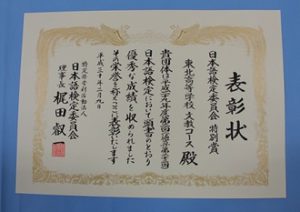 表彰状
日本語検定委員会 特別賞
東北高等学校 文教コース 殿
日本語検定において頭書のとおり
優秀な成績を収められました
その栄誉を称えここに表彰いたします
平成三十年二月九日
特定非営利活動法人
日本語検定委員会
理事長 梶田叡一